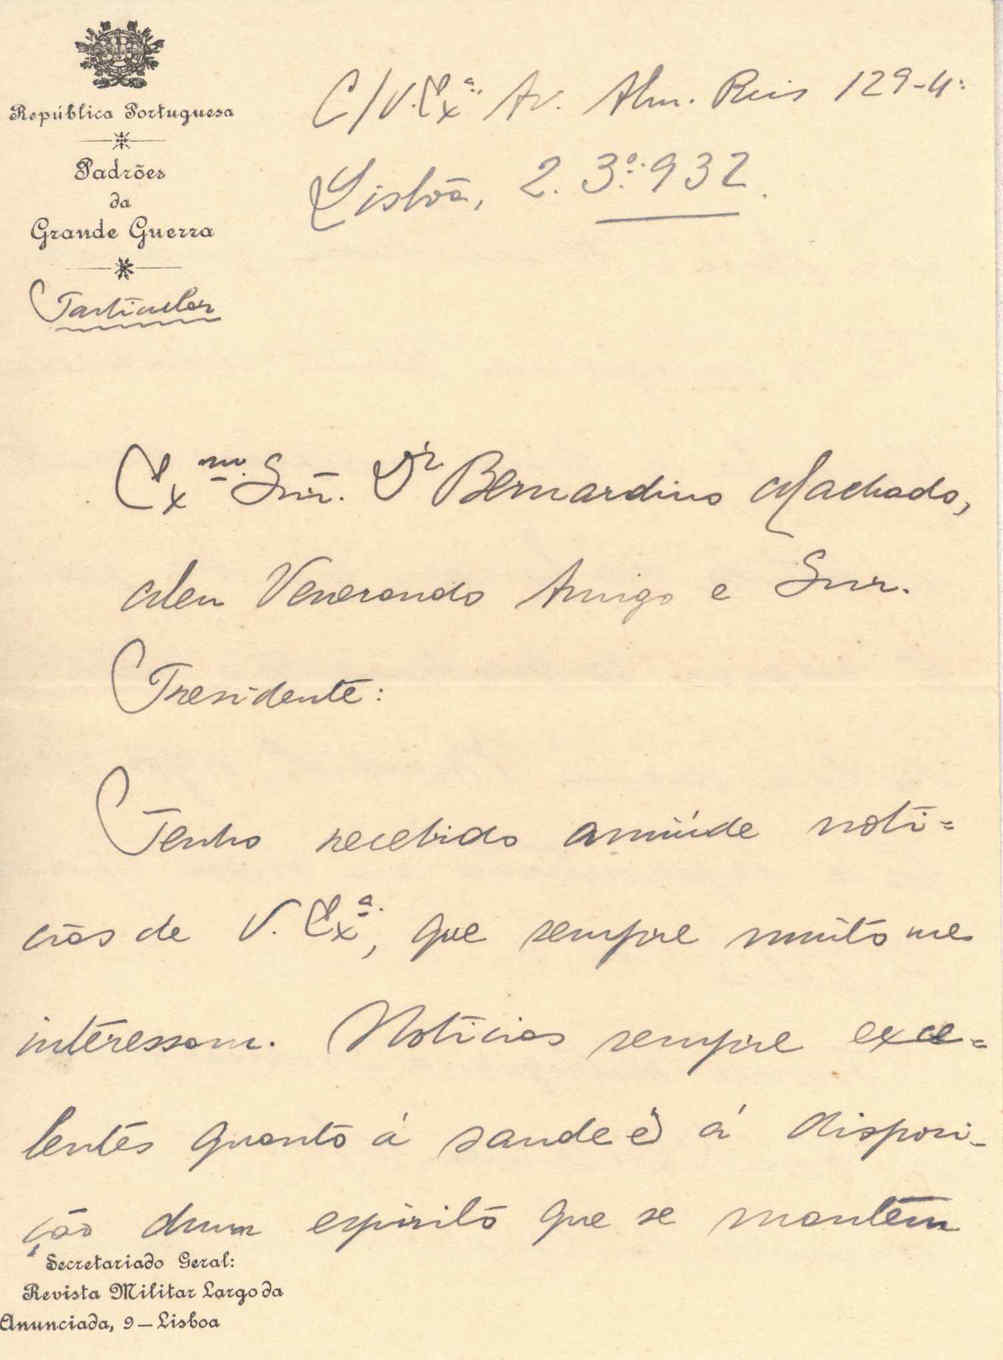 República Portuguesa
Padrões
da
Grande Guerra
Particular
C/V. Exª. Av. Alm. Reis 129-4º
Lisbôa, 2. 3º. 932.
Exmo. Snr. Dr Bernardino Machado,
Meu Venerando Amigo e Snr.
Presidente:
Tenho recebido amiúde noti=
cias de V. Exª., que sempre muito me
interessam. Noticias sempre exce=
lentes quanto á saude e á disposi-
ção dum espirito que se mantem
Secretariado Geral:
Revista Militar Largo da
Anunciada, 9 — Lisboa